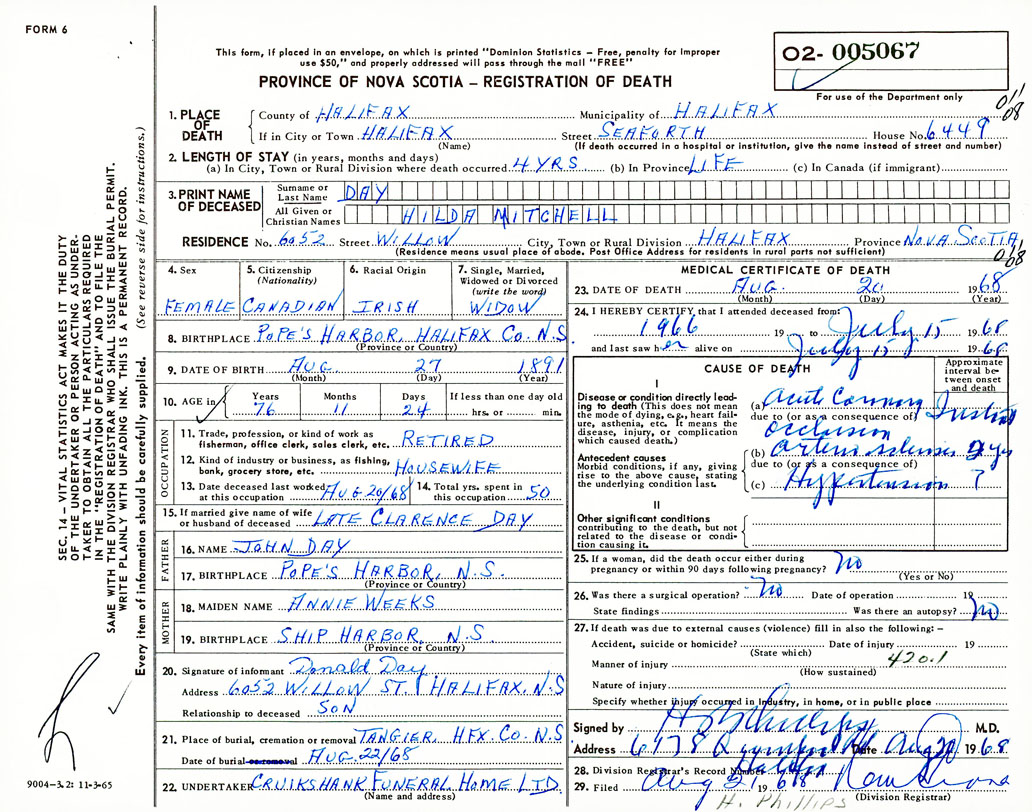 FORM 6
This form, if placed in an envelope, on which is printed "Dominion Statistics – Free, penalty for improper
use $50," and properly addressed will pass through the mail "FREE"
PROVINCE OF NOVA SCOTIA – REGISTRATION OF DEATH
02- 005067
For use of the Department only
011
08
SEC. 14 – VITAL STATISTICS ACT MAKES IT THE DUTY
OF THE UNDERTAKER OR PERSON ACTING AS UNDER-
TAKER TO OBTAIN ALL THE PARTICULARS REQUIRED
IN THE "REGISTRATION OF DEATH" AND TO FILE THE
SAME WITH THE DIVISION REGISTRAR WHO SHALL ISSUE THE BURIAL PERMIT.
WRITE PLAINLY WITH UNFADING INK. THIS IS A PERMANENT RECORD.
Every item of information should be carefully supplied. (See reverse side for instructions.)
1. PLACE OF DEATH
County of HALIFAX Municipality of HALIFAX
If in City or Town HALIFAX Street SEAFORTH House No. 6449
(Name) (If death occurred in a hospital or institution, give the name instead of street and number)
2. LENGTH OF STAY (in years, months and days)
(a) In City, Town or Rural Division where death occurred 4 YRS (b) In Province LIFE (c) In Canada (if immigrant)
3. PRINT NAME OF DECEASED
Surname or Last Name DAY
All Given or Christian Names HILDA MITCHELL
RESIDENCE No. 6052 Street WILLOW City, Town or Rural Division HALIFAX Province NOVA SCOTIA
(Residence means usual place of abode. Post Office Address for residents in rural parts not sufficient)
4. Sex FEMALE
5. Citizenship (Nationality) CANADIAN
6. Racial Origin IRISH
7. Single, Married, Widowed or Divorced (write the word) WIDOW
8. BIRTHPLACE POPE'S HARBOR, HALIFAX Co. N.S
(Province or Country)
9. DATE OF BIRTH AUG. 27 1891
(Month) (Day) (Year)
10. AGE in Years 76 Months 11 Days 24 If less than one day old hrs. or min.
OCCUPATION
11. Trade, profession, or kind of work as fisherman, office clerk, sales clerk, etc. RETIRED
12. Kind of industry or business, as fishing, bank, grocery store, etc. HOUSEWIFE
13. Date deceased last worked at this occupation AUG 20/68 14. Total yrs. spent in this occupation 50
15. If married give name of wife or husband of deceased LATE CLARENCE DAY
FATHER
16. NAME JOHN DAY
17. BIRTHPLACE POPE'S HARBOR, N.S.
(Province or Country)
MOTHER
18. MAIDEN NAME ANNIE WEEKS
19. BIRTHPLACE SHIP HARBOR, N.S.
(Province or Country)
20. Signature of informant Donald Day
Address 6052 WILLOW ST. HALIFAX. N.S
Relationship to deceased SON
21. Place of burial, cremation or removal TANGIER, HFX. Co. N.S
Date of burial AUG. 22/68
22. UNDERTAKER CRUIKSHANK FUNERAL HOME LTD.
(Name and address)
9004-3.2: 11-3-65
MEDICAL CERTIFICATE OF DEATH
23. DATE OF DEATH AUG. 20 1968
(Month) (Day) (Year)
24. I HEREBY CERTIFY, that I attended deceased from:
1966 19 to July 15 1968
and last saw her alive on July 15 1968
CAUSE OF DEATH
Approximate interval between onset and death
I
Disease or condition directly leading to death (This does not mean the mode of dying, e.g., heart failure, asthenia, etc. It means the disease, injury, or complication which caused death.)
(a) Acute Coronary Instant
due to (or as a consequence of)
occlusion
Antecedent causes
Morbid conditions, if any, giving rise to the above cause, stating the underlying condition last.
(b) 2 yrs
due to (or as a consequence of)
(c) Hypertension ?
II
Other significant conditions contributing to the death, but not related to the disease or condition causing it.
25. If a woman, did the death occur either during pregnancy or within 90 days following pregnancy? No
(Yes or No)
26. Was there a surgical operation? No Date of operation 19
State findings Was there an autopsy? No
27. If death was due to external causes (violence) fill in also the following: –
Accident, suicide or homicide? Date of injury 19
(State which) 420.1
Manner of injury
(How sustained)
Nature of injury
Specify whether injury occurred in industry, in home, or in public place
Signed by M.D.
Address 6178 Date Aug 20 1968
28. Division Registrar's Record Number
29. Filed Aug 21 1968
(Division Registrar)
H. PHILLIPS